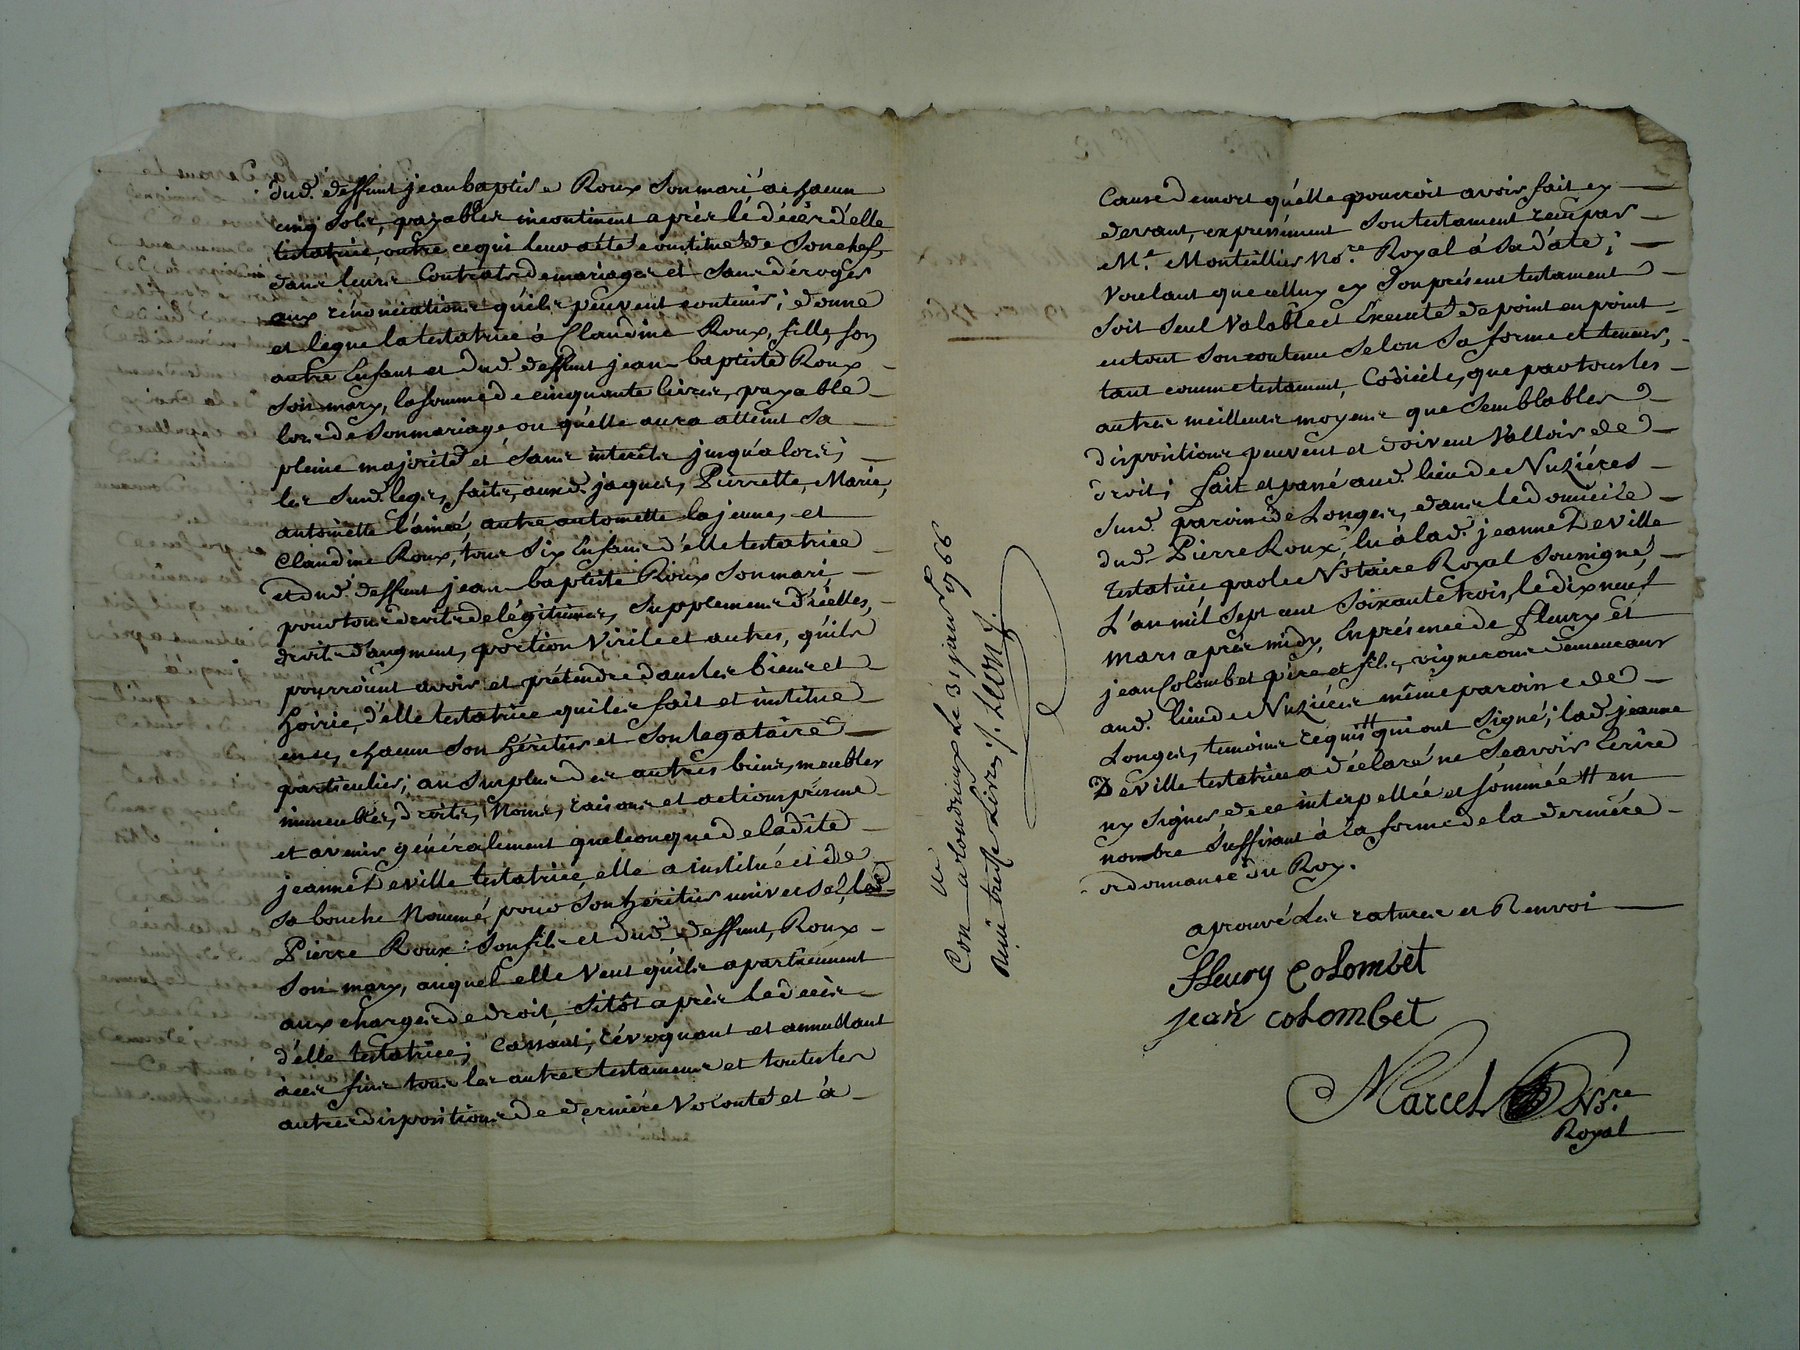 dud. deffunt jean baptiste Roux son mari a chacun
cinq sols, payables incontinent après lé décèr d'elle
testatrice, outre ce qui leur a été constitué de son chef,
dans leurs contrats de mariages et sans déroger
aux rénonciations qu'ils peuvent contenir; donne
et legue la testatrice à Claudine Roux, fille, son
autre Enfant et dud. deffunt jean baptiste Roux
son mary, la somme de cinquante livres, payable
lors de son mariage ou qu'elle aura atteint sa
pleine majorité et sans interêts jusqu'alors;
les susd. legs, faits, auxd. jaques, Pierrette, Marie,
antoinette l'ainée, autre antoinette la jeune, et
Claudine Roux, tous six Enfans d'elle testatrice
et dud. deffunt jean baptiste Roux son mari,
pour tous droits de légitimes, supplemens d'icelles,
droits d'augment, portion virile et autres, qu'ils
pourroint avoir et prétendre dans les biens et
hoirie, d'elle testatrice qui les fait et institue
en ce, chacun son héritier et son legataire
particulier; au surplus des autres biens, meubles
immeubles, droits, noms, raisons et actions présens
et avenir généralement quelconque de ladite
jeanne Deville testatrice elle a institué et de
sa bouche nommé, pour son héritier universel, led.
Pierre Roux son fils et dud. deffunt, Roux
son mary, auquel elle veut qu'ils apartiennent
aux charges de droit, sitôt après le décès
d'elle testatrice; cassant, révoquant et annullant
à ces fins tous les autres testamens et toutes les
autres dispositions de dernière volonté et à
Con.lé a Condrieux le 31 janv. 1766
Reçu treize livres /. LEON
Cause de mort qu'elle pourroit avoir fait cy
devant, expressément son testament reçu par
Me. Monteillier No.re Royal à sa date;
voulant que celluy cy son présent testament
soit seul valable et Executé de point en point
en tout son contenu selon sa forme et teneur,
tant comme testament, Codicile, que par tous les
autres meilleurs moyens que semblables
dispositions peuvent et doivent valloir de
droit; fait et passé aud. lieu de Nuzières
susd. paroisse de Longes, dans le domicile
dud. Pierre Roux, lu à lad. jeanne Deville
testatrice par le Notaire Royal soussigné,
L'an mil sept cent soixante trois, le dix neuf
mars après midy, En présence de fleury et
jean Colombet père et fils, vignerons demeurans
aud. lieu de Nuzières même paroisse de
Longes, temoins requis # qui ont signé; lad. jeanne
Deville testatrice a déclaré ne sçavoir Ecrire
ny signer de ce interpellée et sommée # en
nombre suffisant à la forme de la dernière
ordonnance du Roy.
aprouvé les ratures et Renvoi
fleury colombet
jean colombet
Marcel No.re
Royal